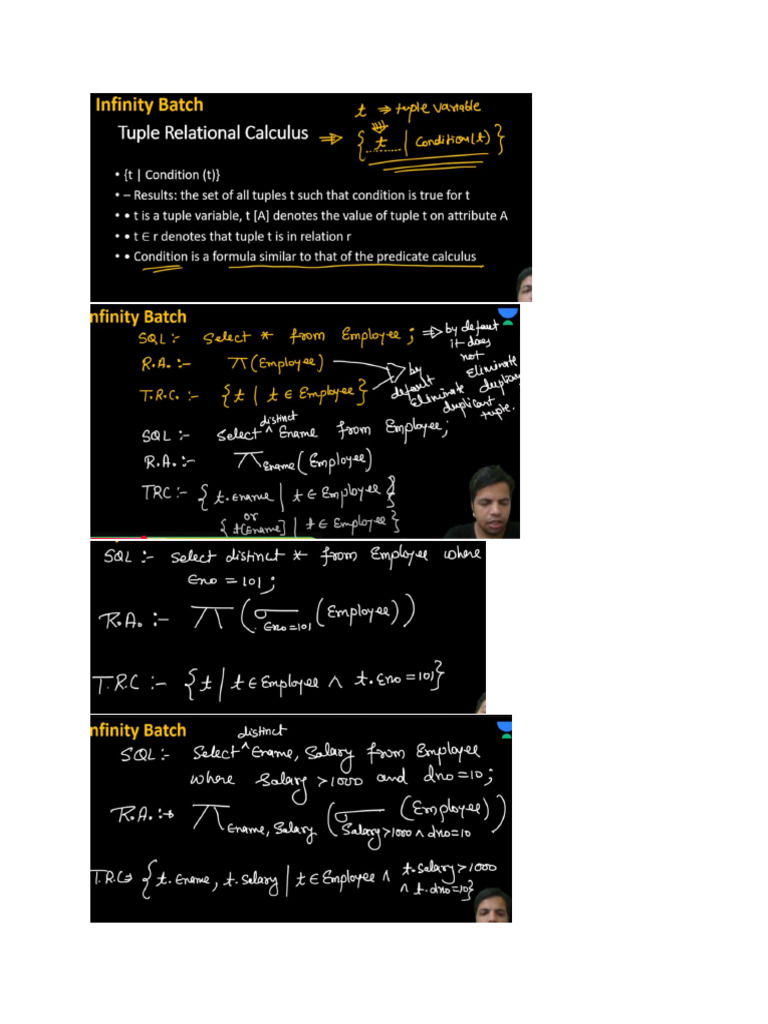 Infinity Batch
t ⇒ tuple variable
Tuple Relational Calculus ⇒ { t | Condition(t) }
• {t | Condition (t)}
• – Results: the set of all tuples t such that condition is true for t
• • t is a tuple variable, t [A] denotes the value of tuple t on attribute A
• • t ∈ r denotes that tuple t is in relation r
• • Condition is a formula similar to that of the predicate calculus
nfinity Batch
SQL :- Select * from Employee ; ⇒ by defaut it does not Eliminate duplicant
R.A. :- π (Employee)
T.R.C. :- { t | t ∈ Employee }
by default Eliminate duplicant tuple.
SQL :- Select ^ distinct Ename from Employee;
R.A. :- π Ename (Employee)
TRC :- { t.Ename | t ∈ Employee }
or
{ t[Ename] | t ∈ Employee }
SQL :- Select distinct * from Employee where
Eno = 101 ;
R.A. :- π ( σ Eno=101 (Employee) )
T.R.C :- { t | t ∈ Employee ∧ t.Eno = 101 }
nfinity Batch
distinct
SQL :- Select ^ Ename, Salary from Employee
where Salary > 1000 and dno = 10 ;
R.A. :→ π Ename, Salary ( σ Salary>1000 ∧ dno=10 (Employee) )
T.R.C→ { t.Ename, t.Salary | t ∈ Employee ∧ t.Salary > 1000
∧ t.dno=10}